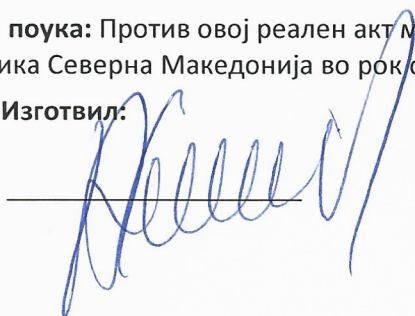 поука: Против овој реален акт
ика Северна Македонија во рок
Изготвил: